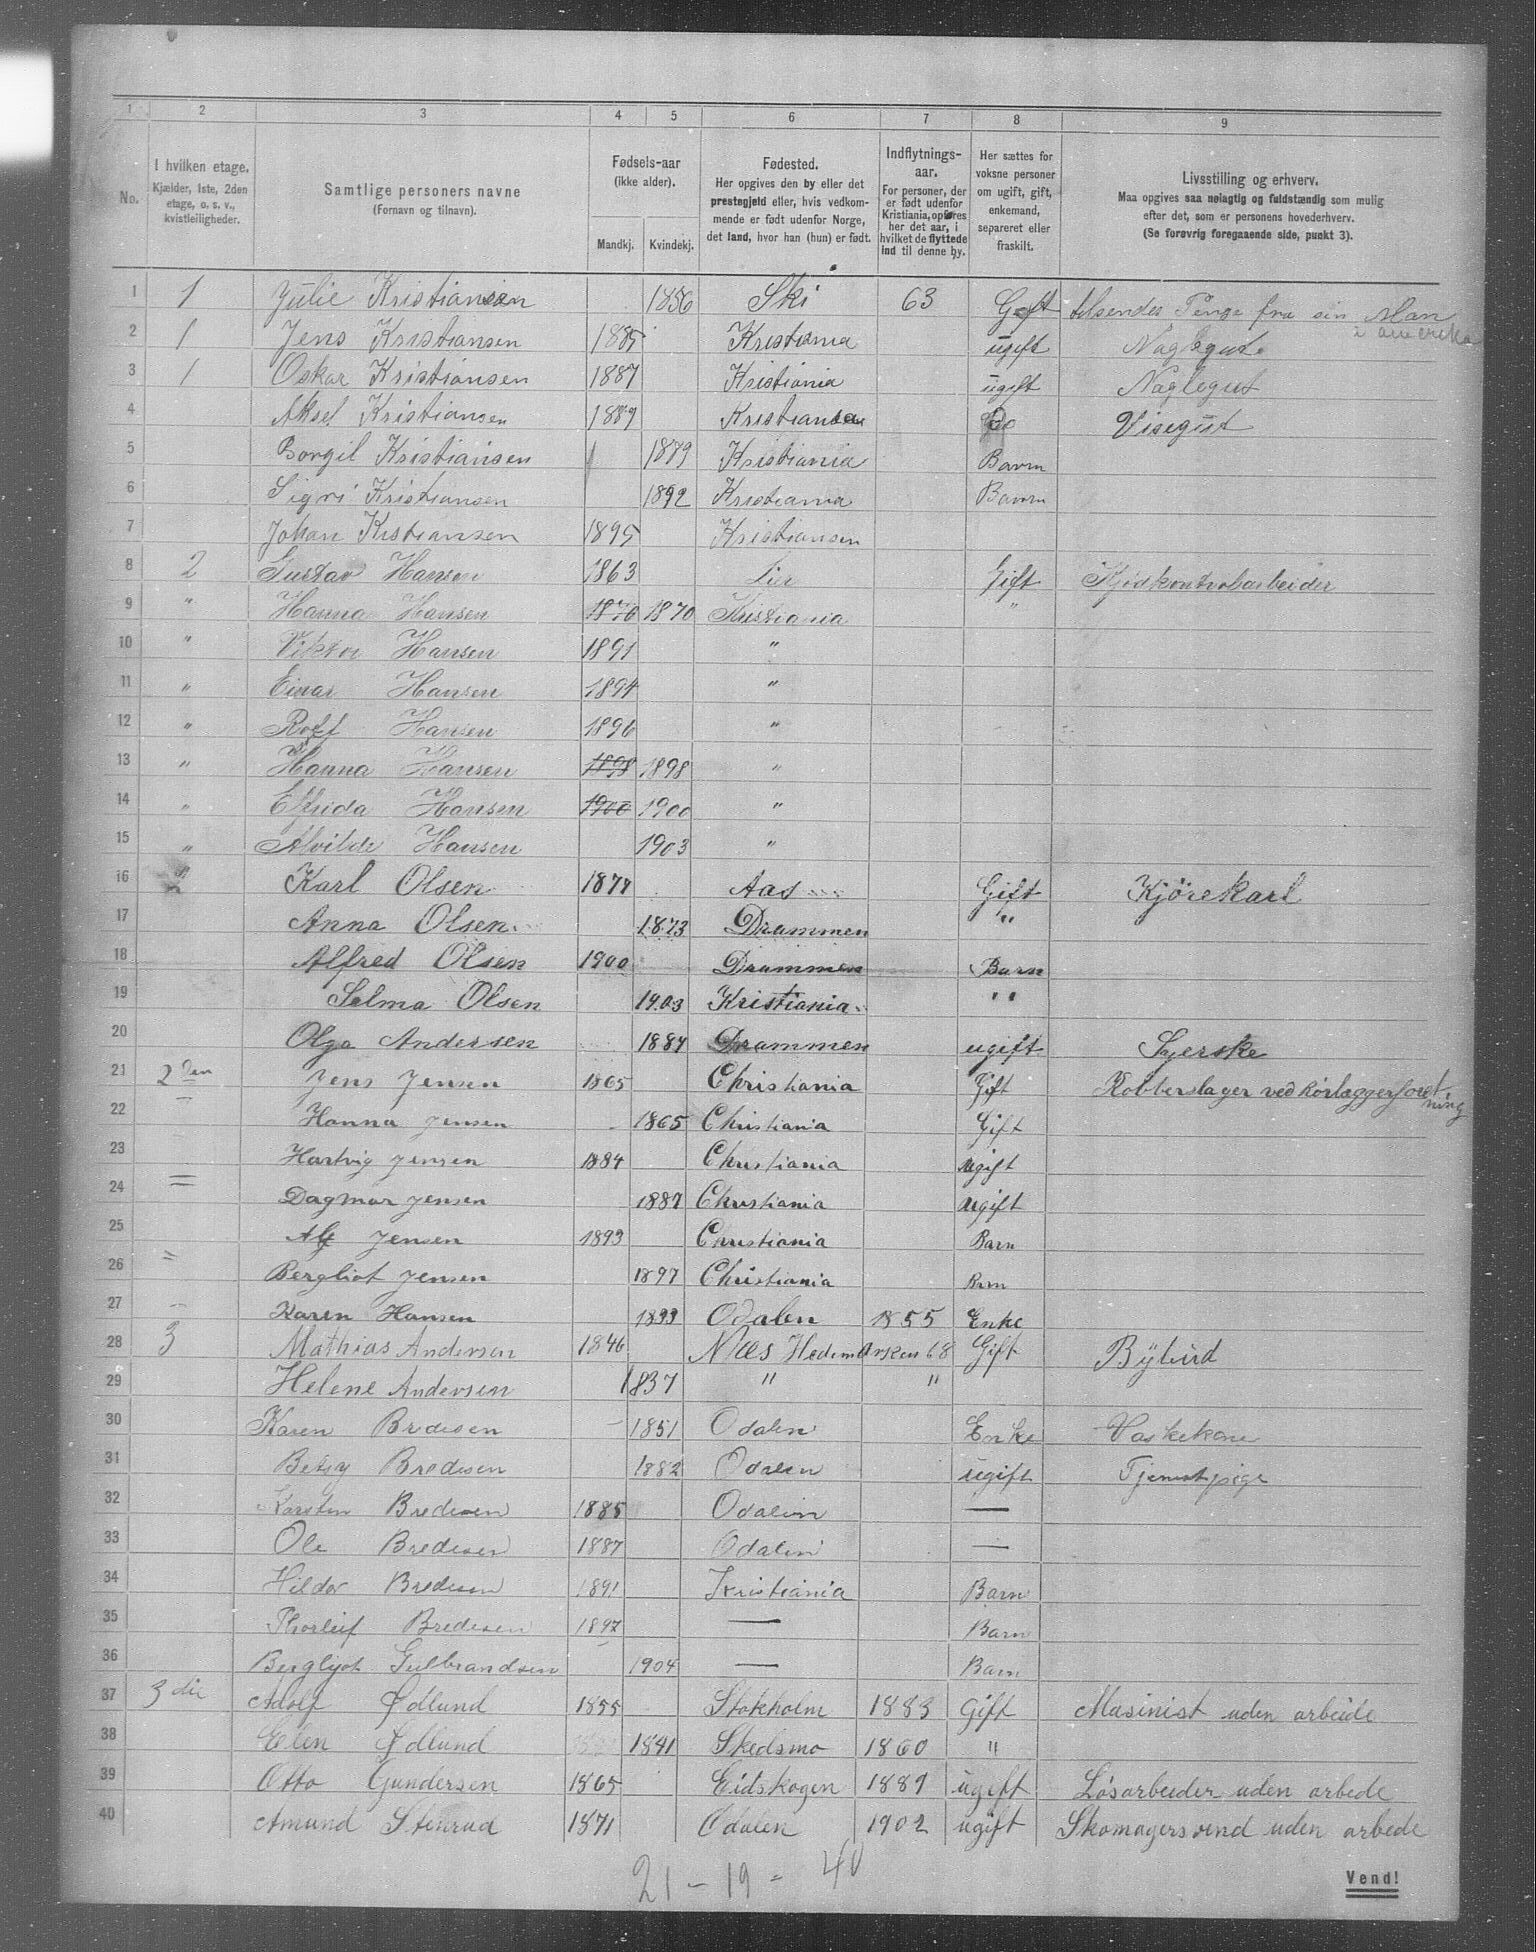 1 2 3 4 5 6 7 8 9
No.
I hvilken etage.
Kjælder, 1ste, 2den
etage, o. s. v.,
kvistleiligheder.
Samtlige personers navne
(Fornavn og tilnavn).
Fødsels-aar
(ikke alder).
Mandkj. Kvindekj.
Fødested.
Her opgives den by eller det
prestegjeld eller, hvis vedkom-
mende er født udenfor Norge,
det land, hvor han (hun) er født.
Indflytnings-
aar.
For personer, der
er født udenfor
Kristiania, opføres
her det aar, i
hvilket de flyttede
ind til denne by.
Her sættes for
voksne personer
om ugift, gift,
enkemand,
separeret eller
fraskilt.
Livsstilling og erhverv.
Maa opgives saa nøiagtig og fuldstændig som mulig
efter det, som er personens hovederhverv.
(Se forøvrig foregaaende side, punkt 3).
1 1 Julie Kristiansen 1856 Ski 63 Gift tilsendes Penge fra sin Man i amerika
2 1 Jens Kristiansen 1885 Kristiania ugift Naglegut
3 1 Oskar Kristiansen 1887 Kristiania ugift Naglegut
4 Aksel Kristiansen 1889 Visegut
5 Borgil Kristiansen 1879 Kristiania Barrn
6 Sigri Kristiansen 1892 Kristiania Barrn
7 Johan Kristiansen 1895 Kristiansen
8 2 Gustav Hansen 1863 Lier Gift
9 " Hanna Hansen 1870 1870 Kristiania "
10 " Viktor Hansen 1891 "
11 " Einar Hansen 1894 "
12 " Rolf Hansen 1896 "
13 " Hanna Hansen 1898 1898 "
14 " Elfrida Hansen 1900 1900 "
15 " Alvilde Hansen 1903 "
16 Karl Olsen Aas Gift Kjörekarl
17 Anna Olsen 1873 Drammen "
18 Alfred Olsen 1900 Drammen Barn
19 Selma Olsen 1903 Kristiania "
20 Olga Andersen 1884 Drammen ugift Syerske
21 2den Jens Jensen 1865 Christiania Gift Kobberslager ved Rörlæggerforetning
22 Hanna Jensen 1865 Christiania Gift
23 Hartvig Jensen 1884 Christiania ugift
24 = Dagmar Jensen 1887 Christiania ugift
25 Alf Jensen 1893 Christiania Barn
26 = Bergliot Jensen 1897 Christiania Barn
27 Karen Hansen Odalen 1855 Enke
28 3 Mathias Andersen 1846 Næs Hedemarken 68 Gift Bybud
29 Helene Andersen 1837 " "
30 Karen Bredesen 1851 Odalen Enke Vaskekone
31 Betsy Bredesen 1882 Odalen ugift Tjenestpige
32 Karsten Bredesen 1885 Odalen —
33 Ole Bredesen 1887 Odalen —
34 Hildor Bredesen 1891 Kristiania Barn
35 Thorleif Bredesen 1897 — Barn
36 Berglyot Gulbrandsen 1904 — Barn
37 3die Adolf Ødlund 1855 Stokholm 1883 Gift Masinist uden arbeide
38 Elen Ødlund 1841 Skedsmo 1860 "
39 Otto Gundersen 1865 Eidskogen 1889 ugift Løsarbeider uden arbede
40 Amund Stenrud 1871 Odalen 1902 ugift Skomagersvend uden arbede
21 - 19 = 40
Vend!